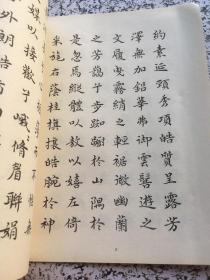 約素延頸秀項皓質呈露芳
澤無加鉛華弗御雲髻遊之
文履曳霧綃之輕裾微幽蘭
之芳藹兮步踟躕於山隅於
是忽焉縱體以敖以嬉左倚
采旄右蔭桂旗攘皓腕於神
以接歡兮峨々脩眉聯娟
外朗皓